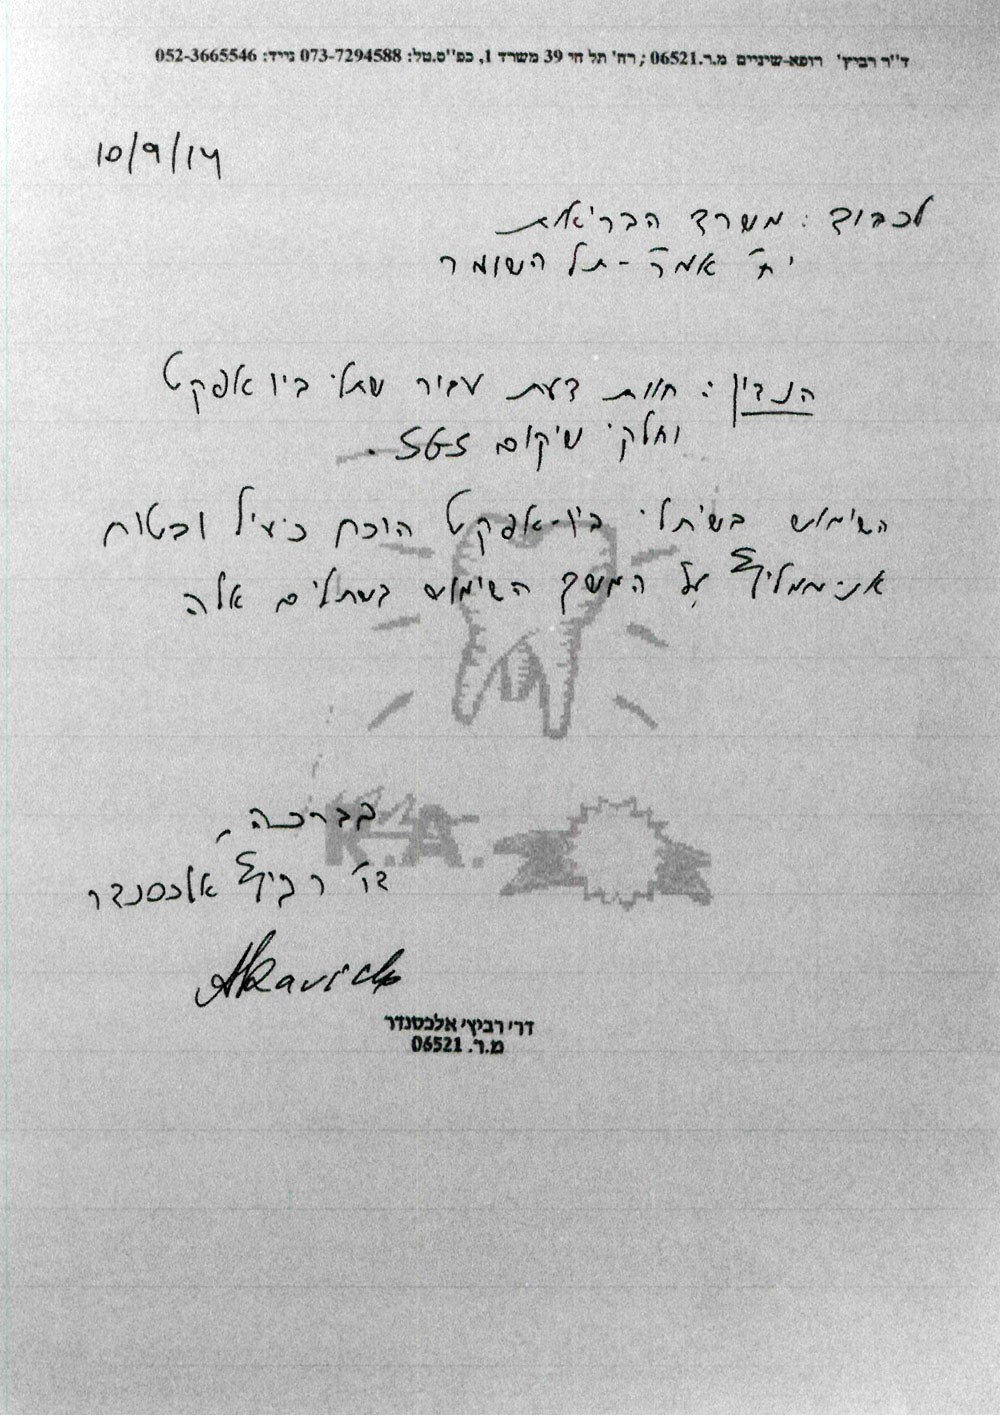 ד"ר רביץ' רופא-שיניים מ.ר.06521 ; רח' תל חי 39 משרד 1, כפ"ס.טל: 073-7294588 נייד: 052-3665546
10/9/14
לכבוד : משרד הבריאות
יח' אמ"ר - תל השומר
הנדון : חוות דעת עבור שתלי ביו אפקט
וחלקי שיקום SGS .
השימוש בשיתלי ביו-אפקט הוכח כיעיל ובטוח
אני ממליץ על המשך השימוש בשתלים אלה
בברכה,
K.A.
דר' רביץ אלכסנדר
ARavich
דר' רביצ'י אלכסנדר
מ.ר. 06521